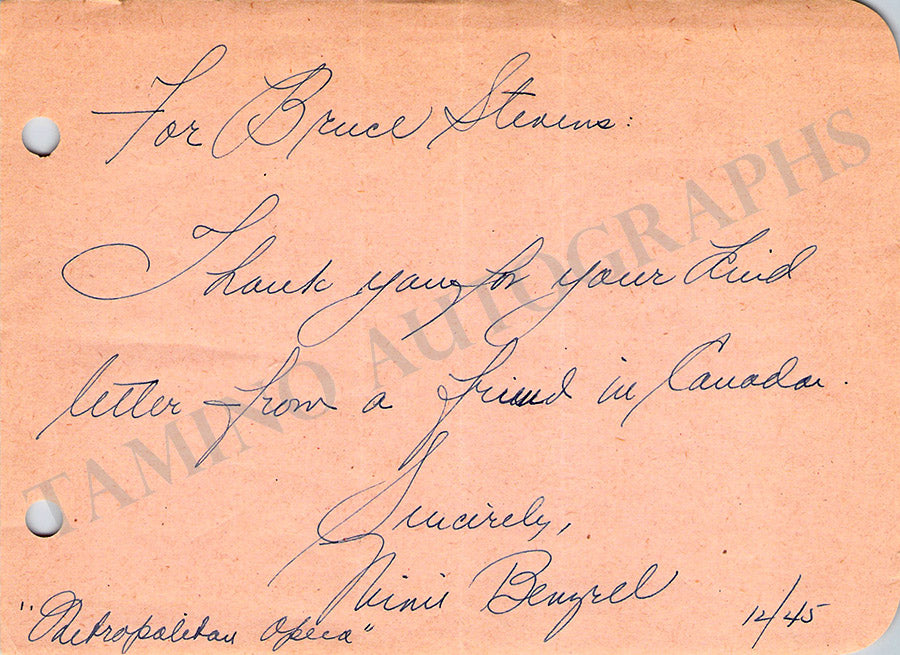 For Bruce Stevens:
Thank you for your kind
letter from a friend in Canada.
Sincerely,
Mimi Benzell
"Metropolitan Opera"
12/45
TAMINO AUTOGRAPHS